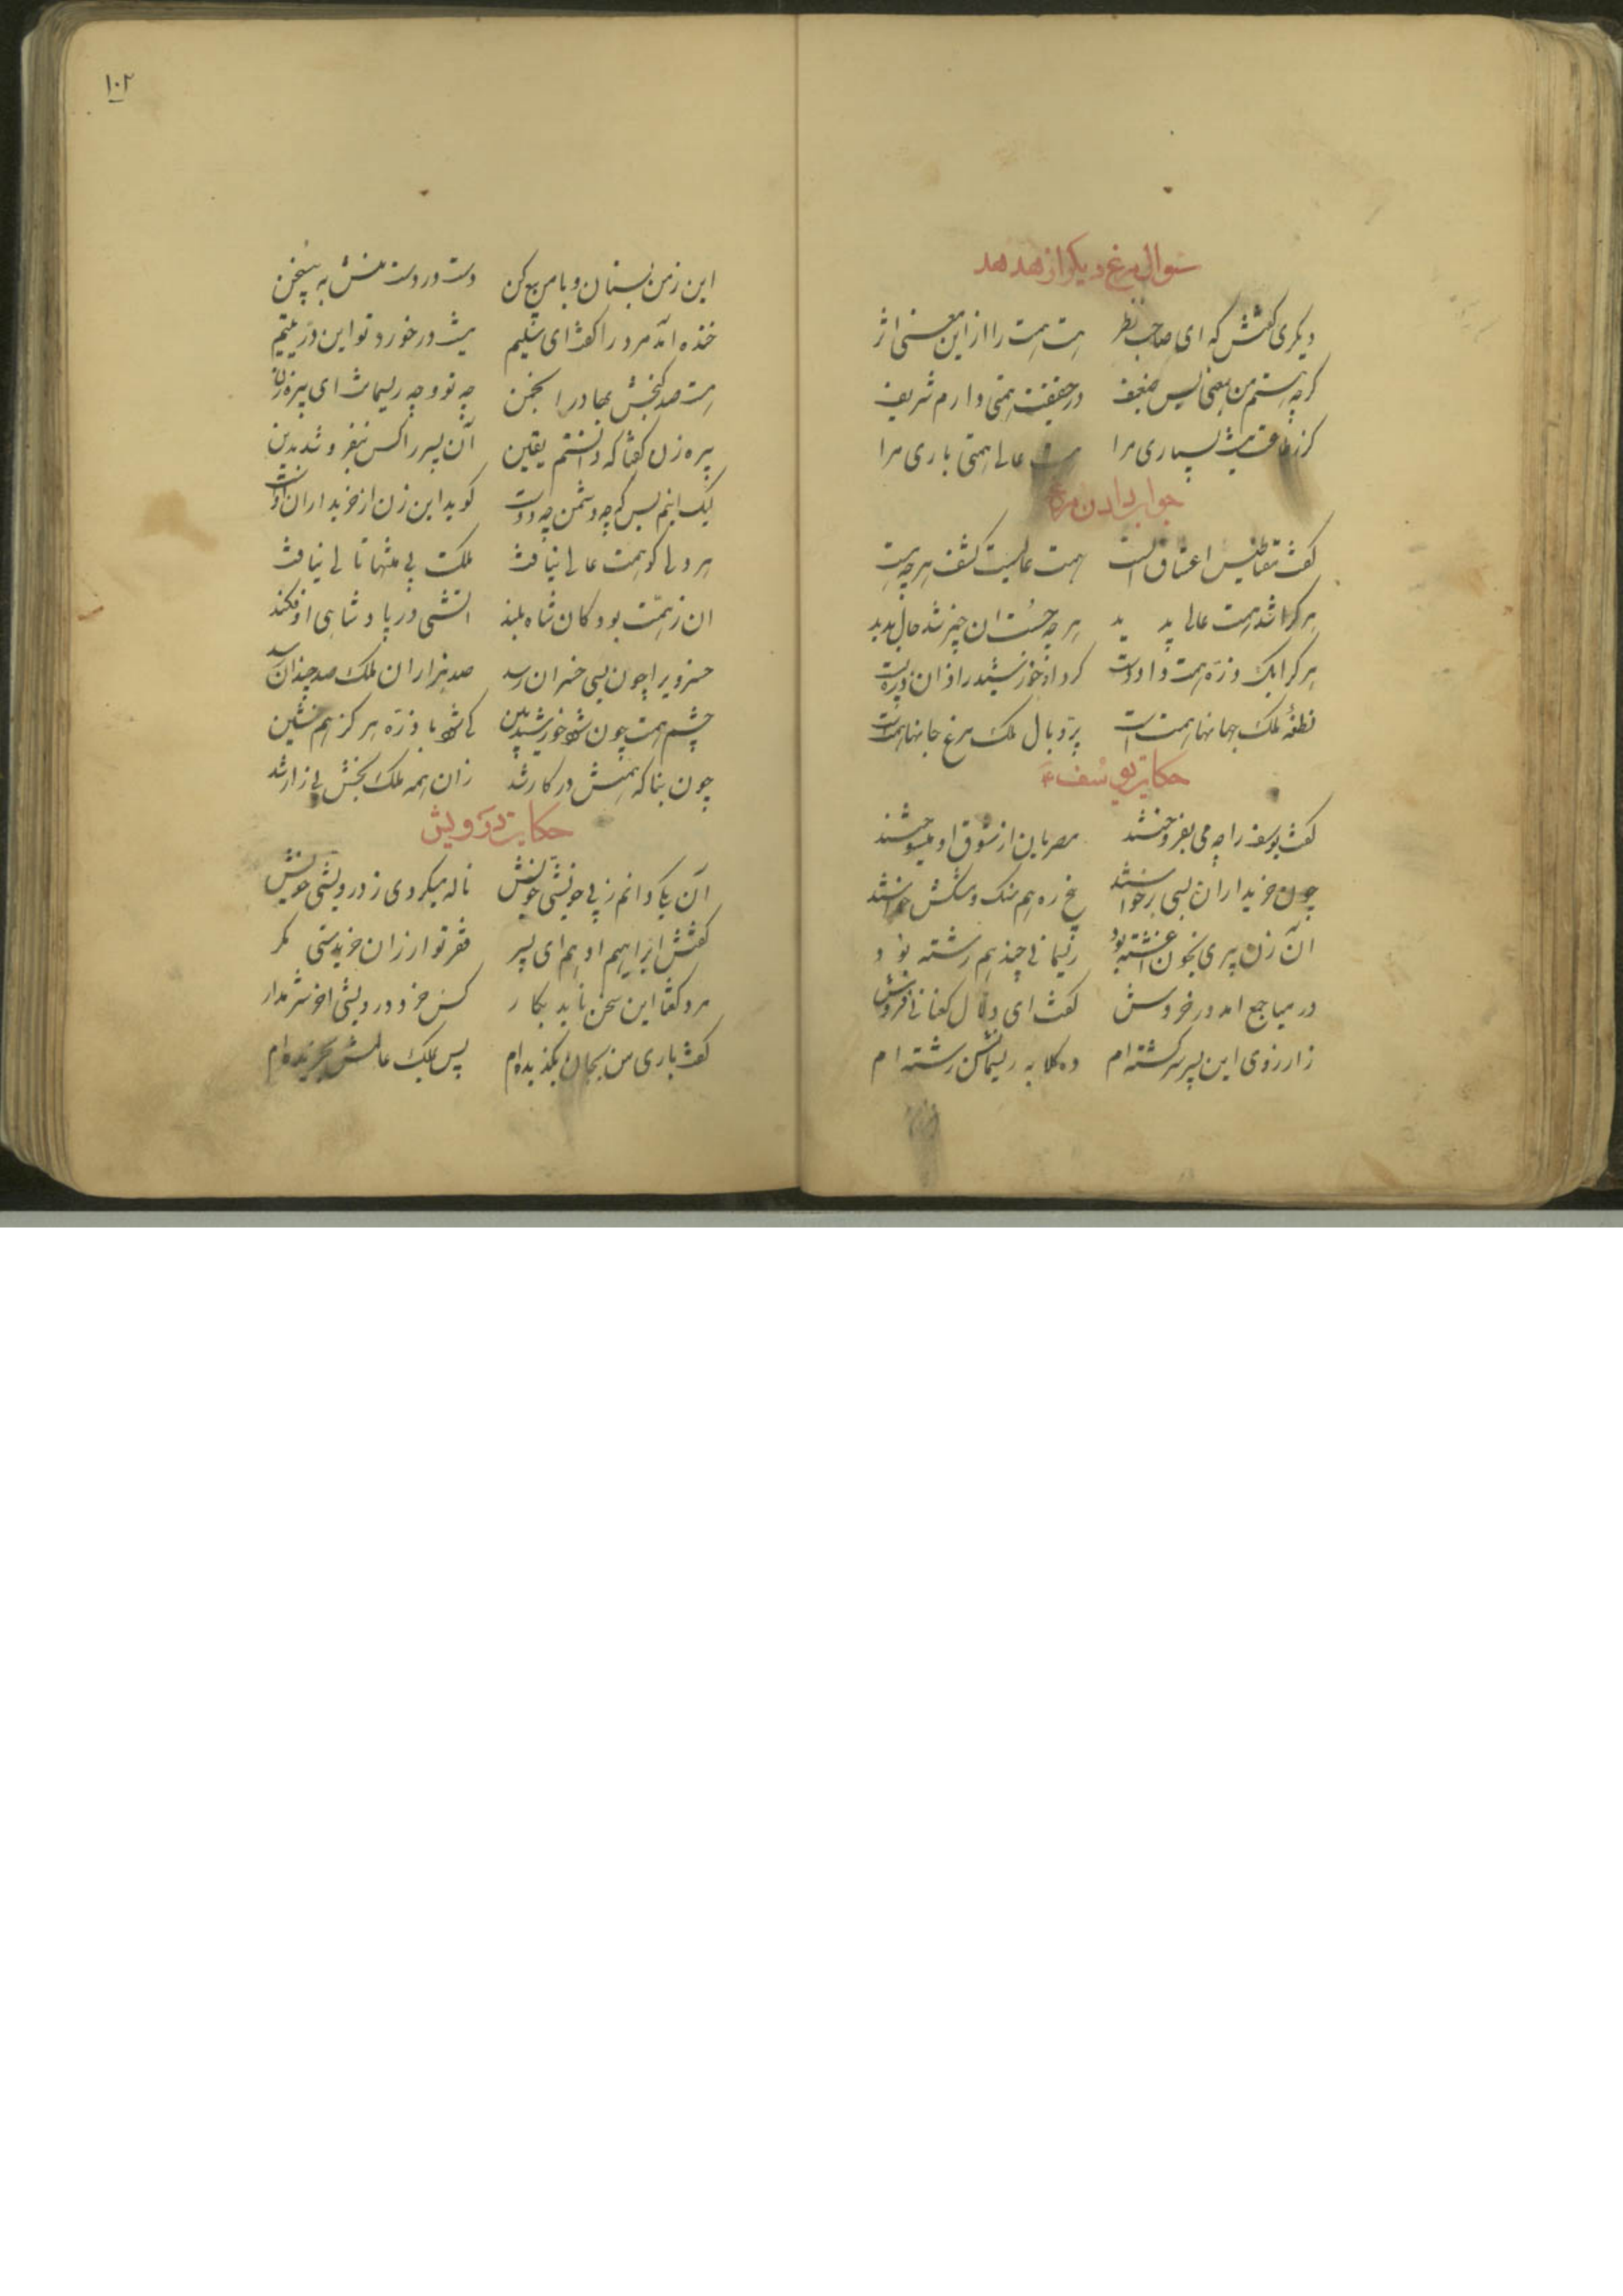 سوال مرغ دیکر از هدهد
دیکری کفتش که ای صاحب نظر هست همت را ازاین معنی اثر
کرچه هستم من بمعنی بس ضعیف در حقیقت همتی دارم شریف
کر ز طاعت نیست بسیاری مرا هست عالی همتی باری مرا
جواب دادن مرغ
کفت مقناطیس اعشاق الست همت عالیست کشف هرچه هست
هرکرا شد همت عالی پدید هرچه جست ان چیز شد حالی بدید
هرکرا یک ذره همت داد دست کرد او خورشید را زان ذره پست
نطفهٔ ملک جهانها همت است پر و بال ملک مرغ جانها همت است
حکایت یوسف ع
کفت یوسف را چه می بفروختند مصریان از شوق او میسوختند
چون خریداران بسی برخواستند پنج ره هم سنک مشکش خواستند
آن زن پیری بخون آغشته بود ریسمانی چند هم رشته بود
در میا جمع امد در خروش کفت ای دلال کنعانی فروش
زارزوی این پسر سرکشته ام ده کلابه ریسمانش رشته ام
۱۰۲
این زمن بستان و با من بیع کن دست در دست منش نه بی سخن
خنده امد مرد را کفت ای سلیم نیست در خورد تو این در یتیم
هست صد کنجش بها در انجمن چه تو و چه ریسمانت ای پیرزن
پیره زن کفتا که دانستم یقین آن پسر را کس نفروشد بدین
لیک اینم بس که چه دشمن چه دوست کوید این زن از خریداران اوست
هر دلی کو همت عالی نیافت ملکت بی منتها تا لی نیافت
ان زهمت بود کان شاه بلند اتشی در پادشاهی اوفکند
خسرویرا چون بسی خسران رسید صد هزاران ملک صد چندان رسید
چشم همت چون شود خورشید بین کی شود با ذره هرکز هم نشین
چون بناکه همتش در کار شد زان همه ملک بخش بی زار شد
حکایت درویش
آن یکی دانم ز بی خویشی خویش ناله میکردی ز درویشی خویش
کفتش ابراهیم ادهم ای پسر فقر تو ارزان خریدستی مکر
مرد کفتا این سخن ناید بکار کس خرد درویشی اخر شرم دار
کفت باری من بجان بکزیده ام پس بملک عالمش بخریده ام